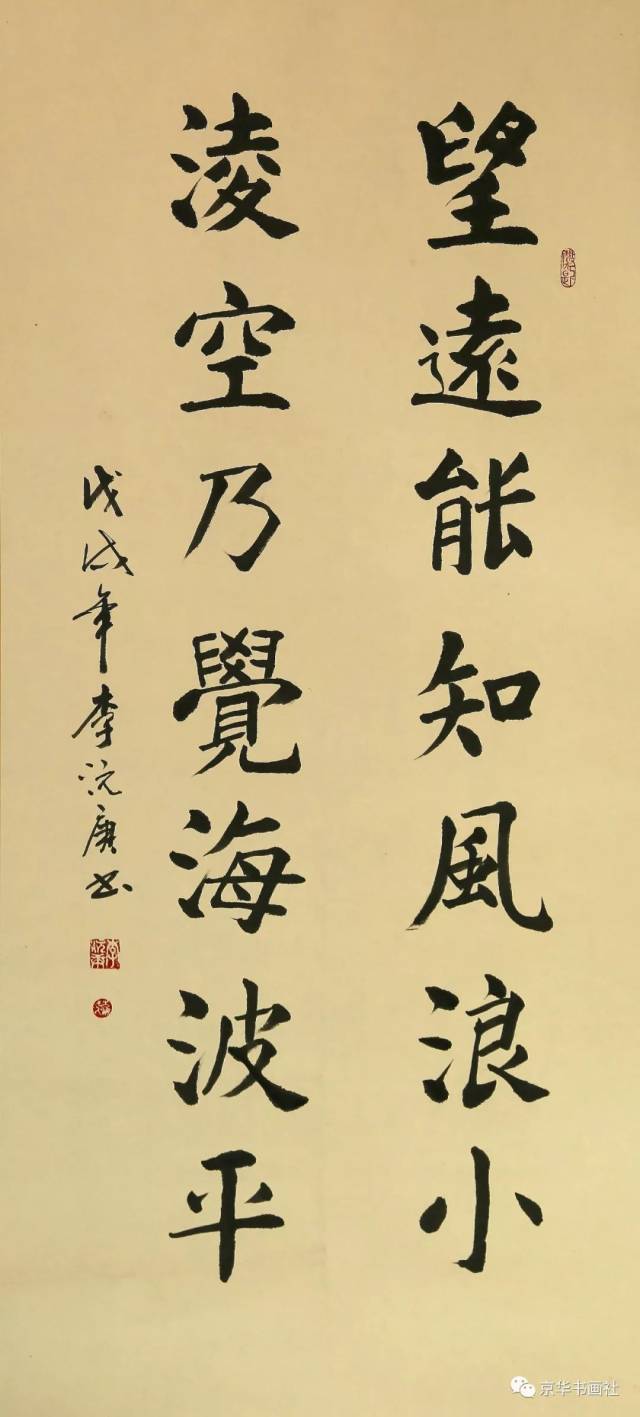 望遠能知風浪小
淩空乃覺海波平
戊戌年李沅庚书
京华书画社